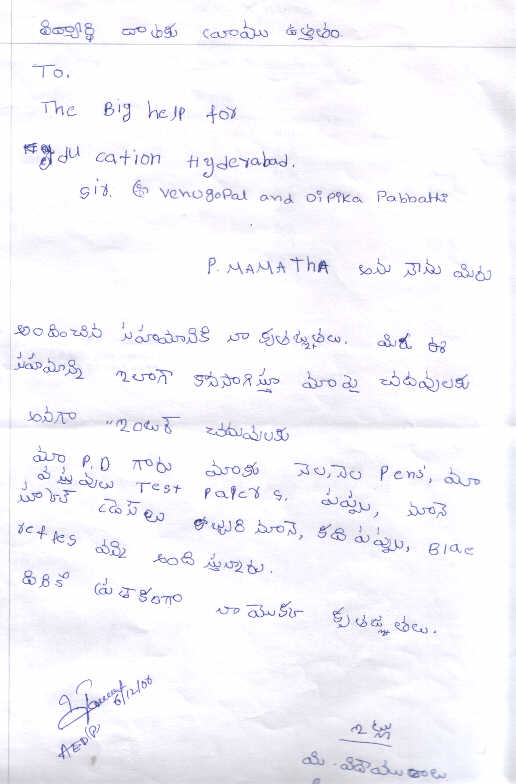 విద్యార్థి దాతకు వ్రాయు ఉత్తరం.
To.
The Big help for
Edu cation Hyderabad.
sir. venugopal and Dipika Pabbathi
P. MAMATHA అను నేను మీరు
అందించిన సహాయానికి నా కృతజ్ఞతలు. మీరు ఈ
సహయాన్ని ఇలాగే కొనసాగిస్తూ మా పై చదువులకు
అనగా "ఇంటర్ చదువులకు
మా P.D గారు మాకు నెల, నెల Pens, మా
వస్తువులు Test Papers. పప్పు, నూనె
స్కూల్ డ్రెస్‌లు కొబ్బరి నూనె, కంది పప్పు, Blac
అంది స్తున్నారు.
వీరికి ప్రత్యేకంగా నా యొక్క కృతజ్ఞతలు.
6/12/06
AED(P)
ఇట్లు
మీ